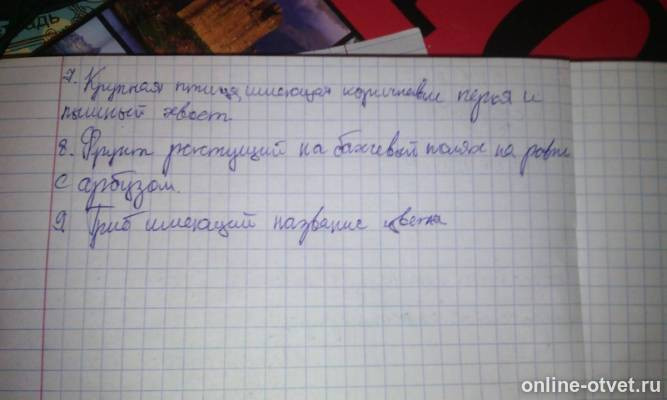 7. Крупная птица, имеющая коричневые перья и
пышный хвост.
8. Фрукт растущий на бахчевый полях на ровне
с арбузом.
9. Гриб имеющий название цвета
online-otvet.ru